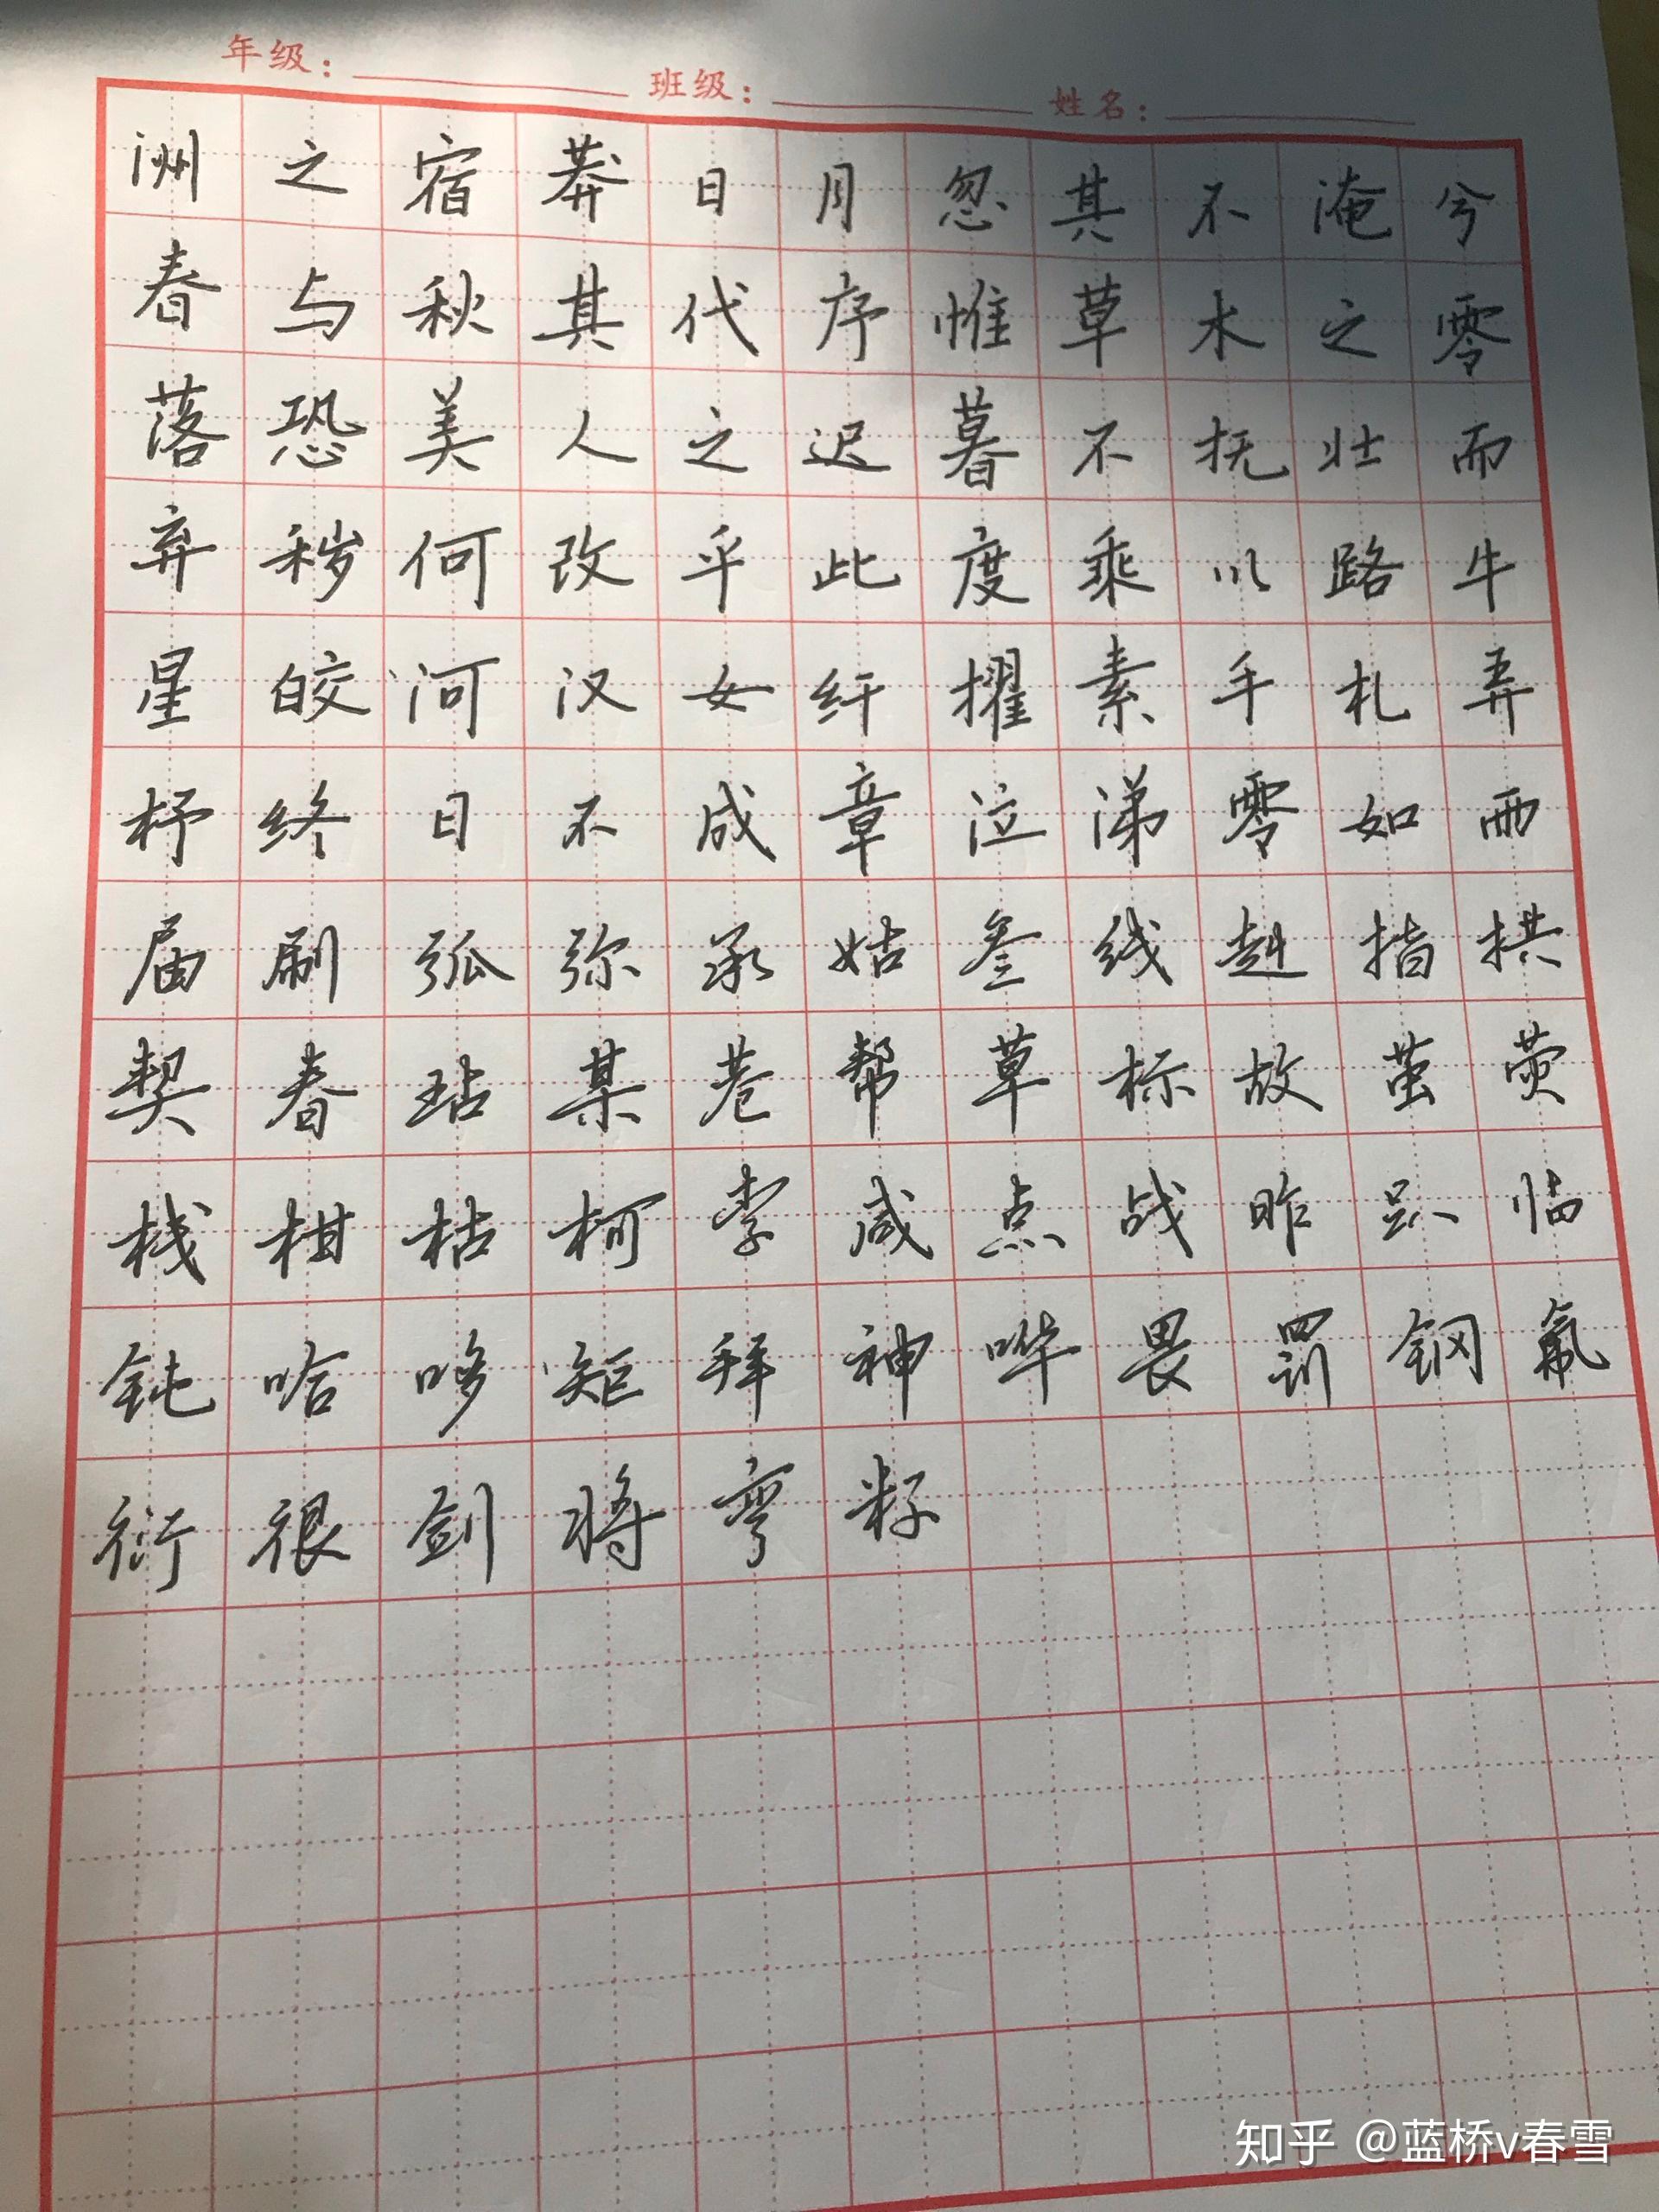 年级： 班级： 姓名：
洲之宿莽日月忽其不淹兮
春与秋其代序惟草木之零
落恐美人之迟暮不抚壮而
弃秽何改乎此度乘以路牛
星皎河汉女纤擢素手札弄
杼终日不成章泣涕零如雨
届刷弧弥承姑叁线赴指拱
契春玷某巷帮草标故茧荧
栈柑枯柯李咸点战昨趴临
钝哈哆矩拜神哗畏罚钢氟
衍很剑将弯籽
知乎 @蓝桥v春雪